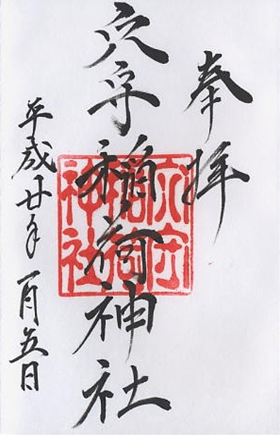 奉拝
穴守稲荷神社
穴守稲荷神社
平成廿年一月五日